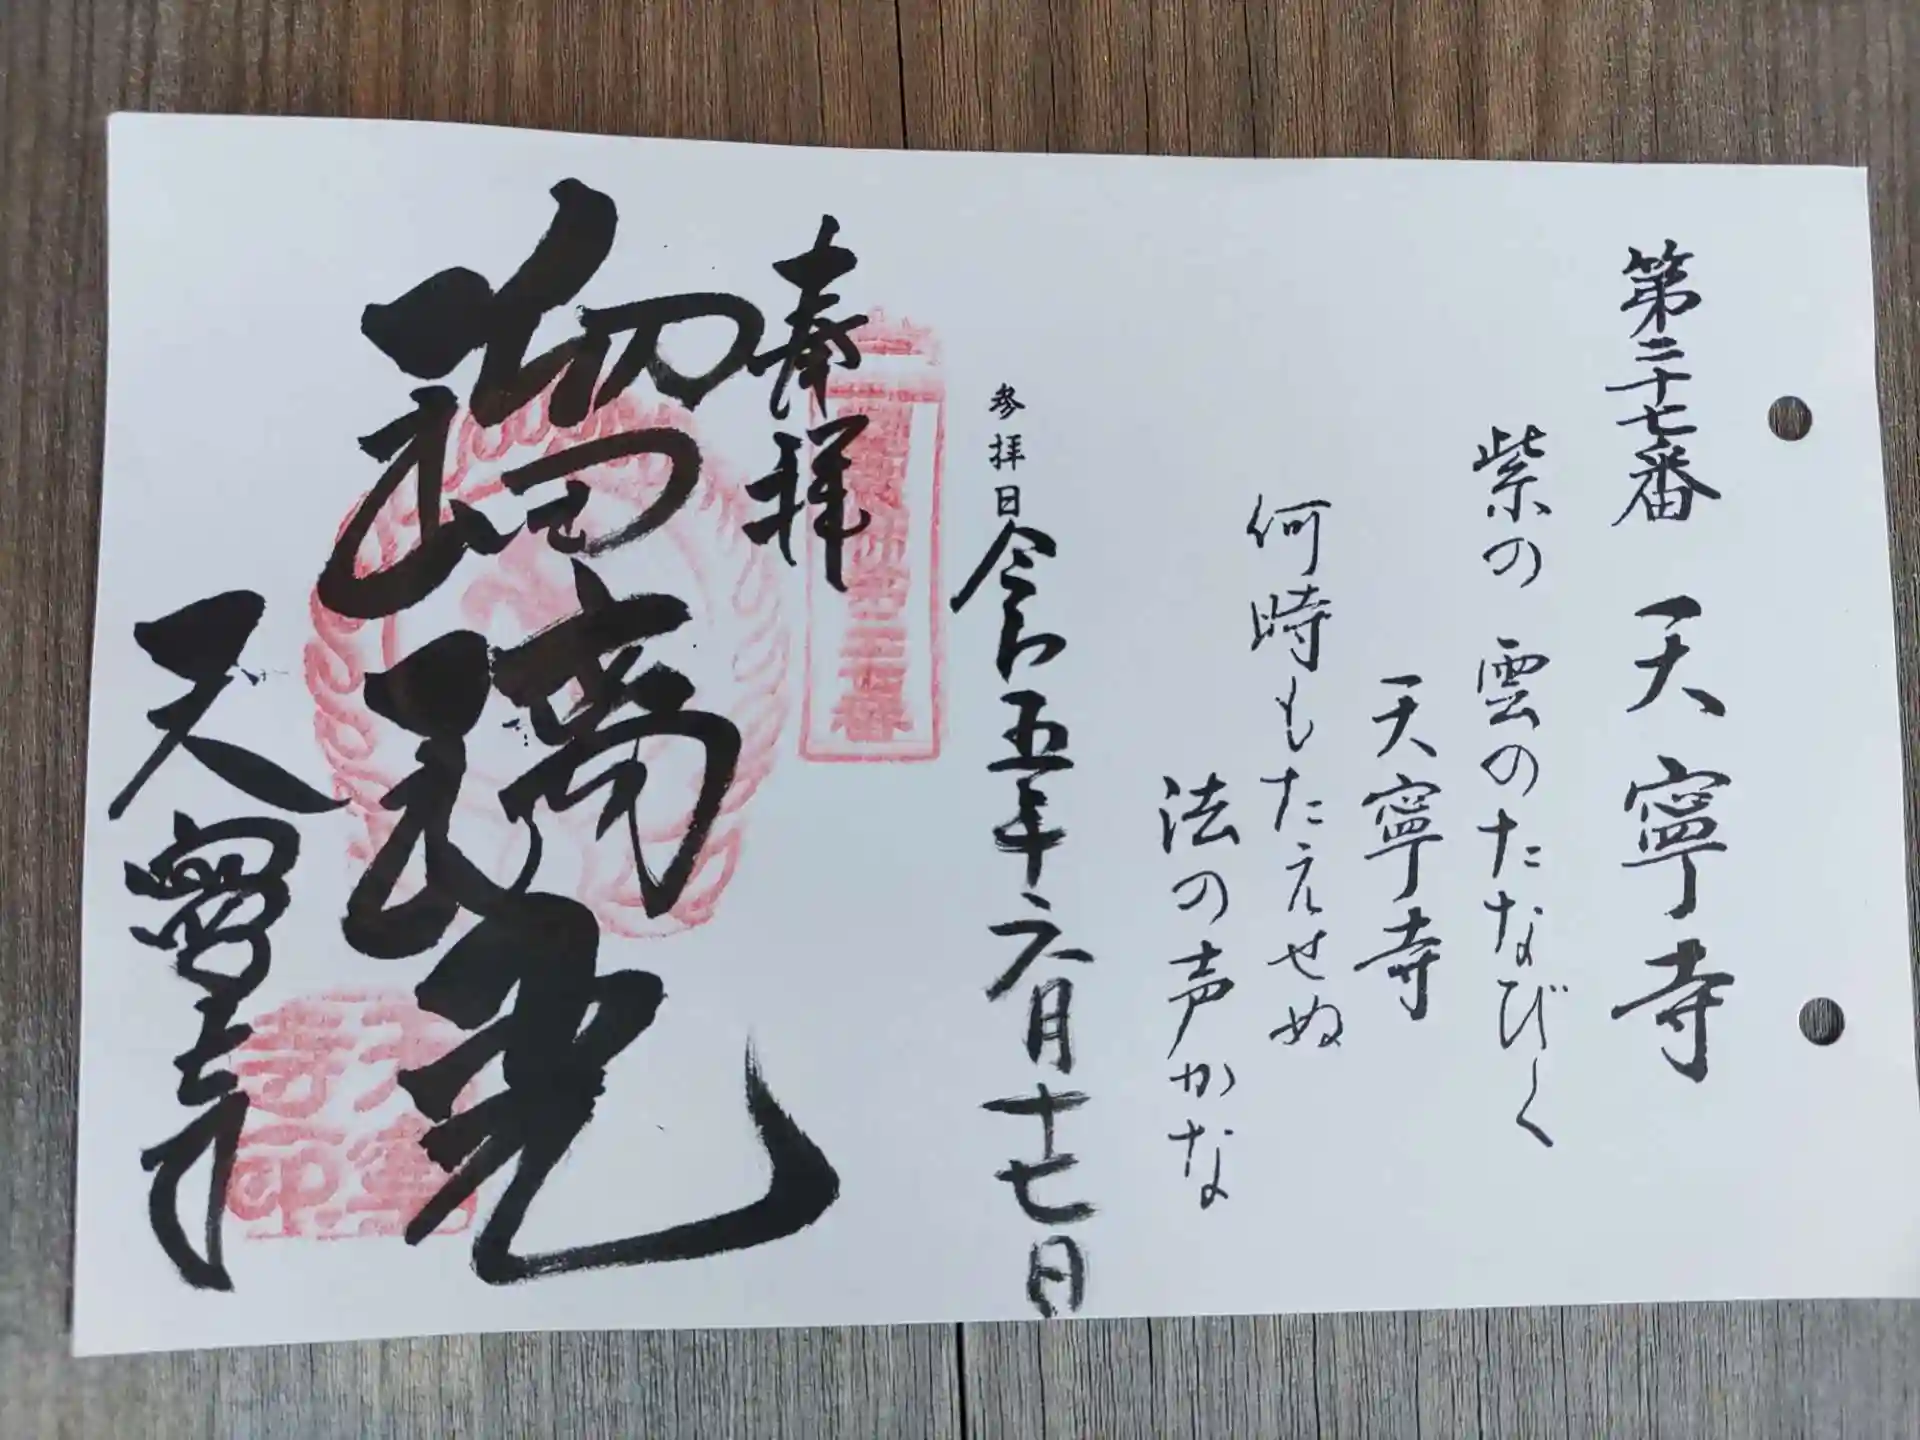 第二十七番 天寧寺
紫の 雲のたなびく
天寧寺
何時もたえせぬ
法の声かな
参拝日 令和五年六月十七日
奉拝
瑠璃光
天寧寺
天寧寺印